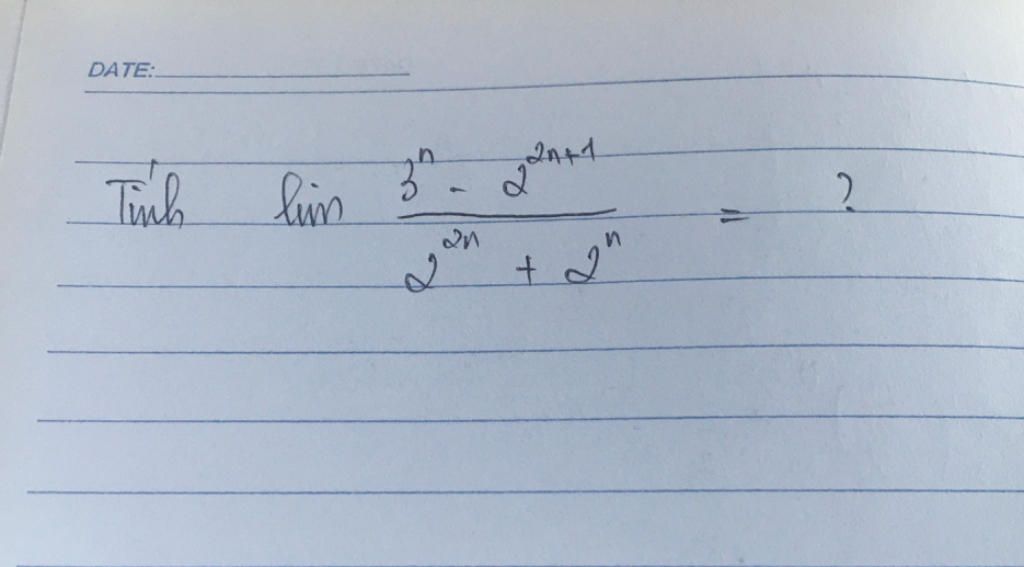 DATE:
Tính lim (3^n - 2^(2n+1)) / (2^(2n) + 2^n) = ?